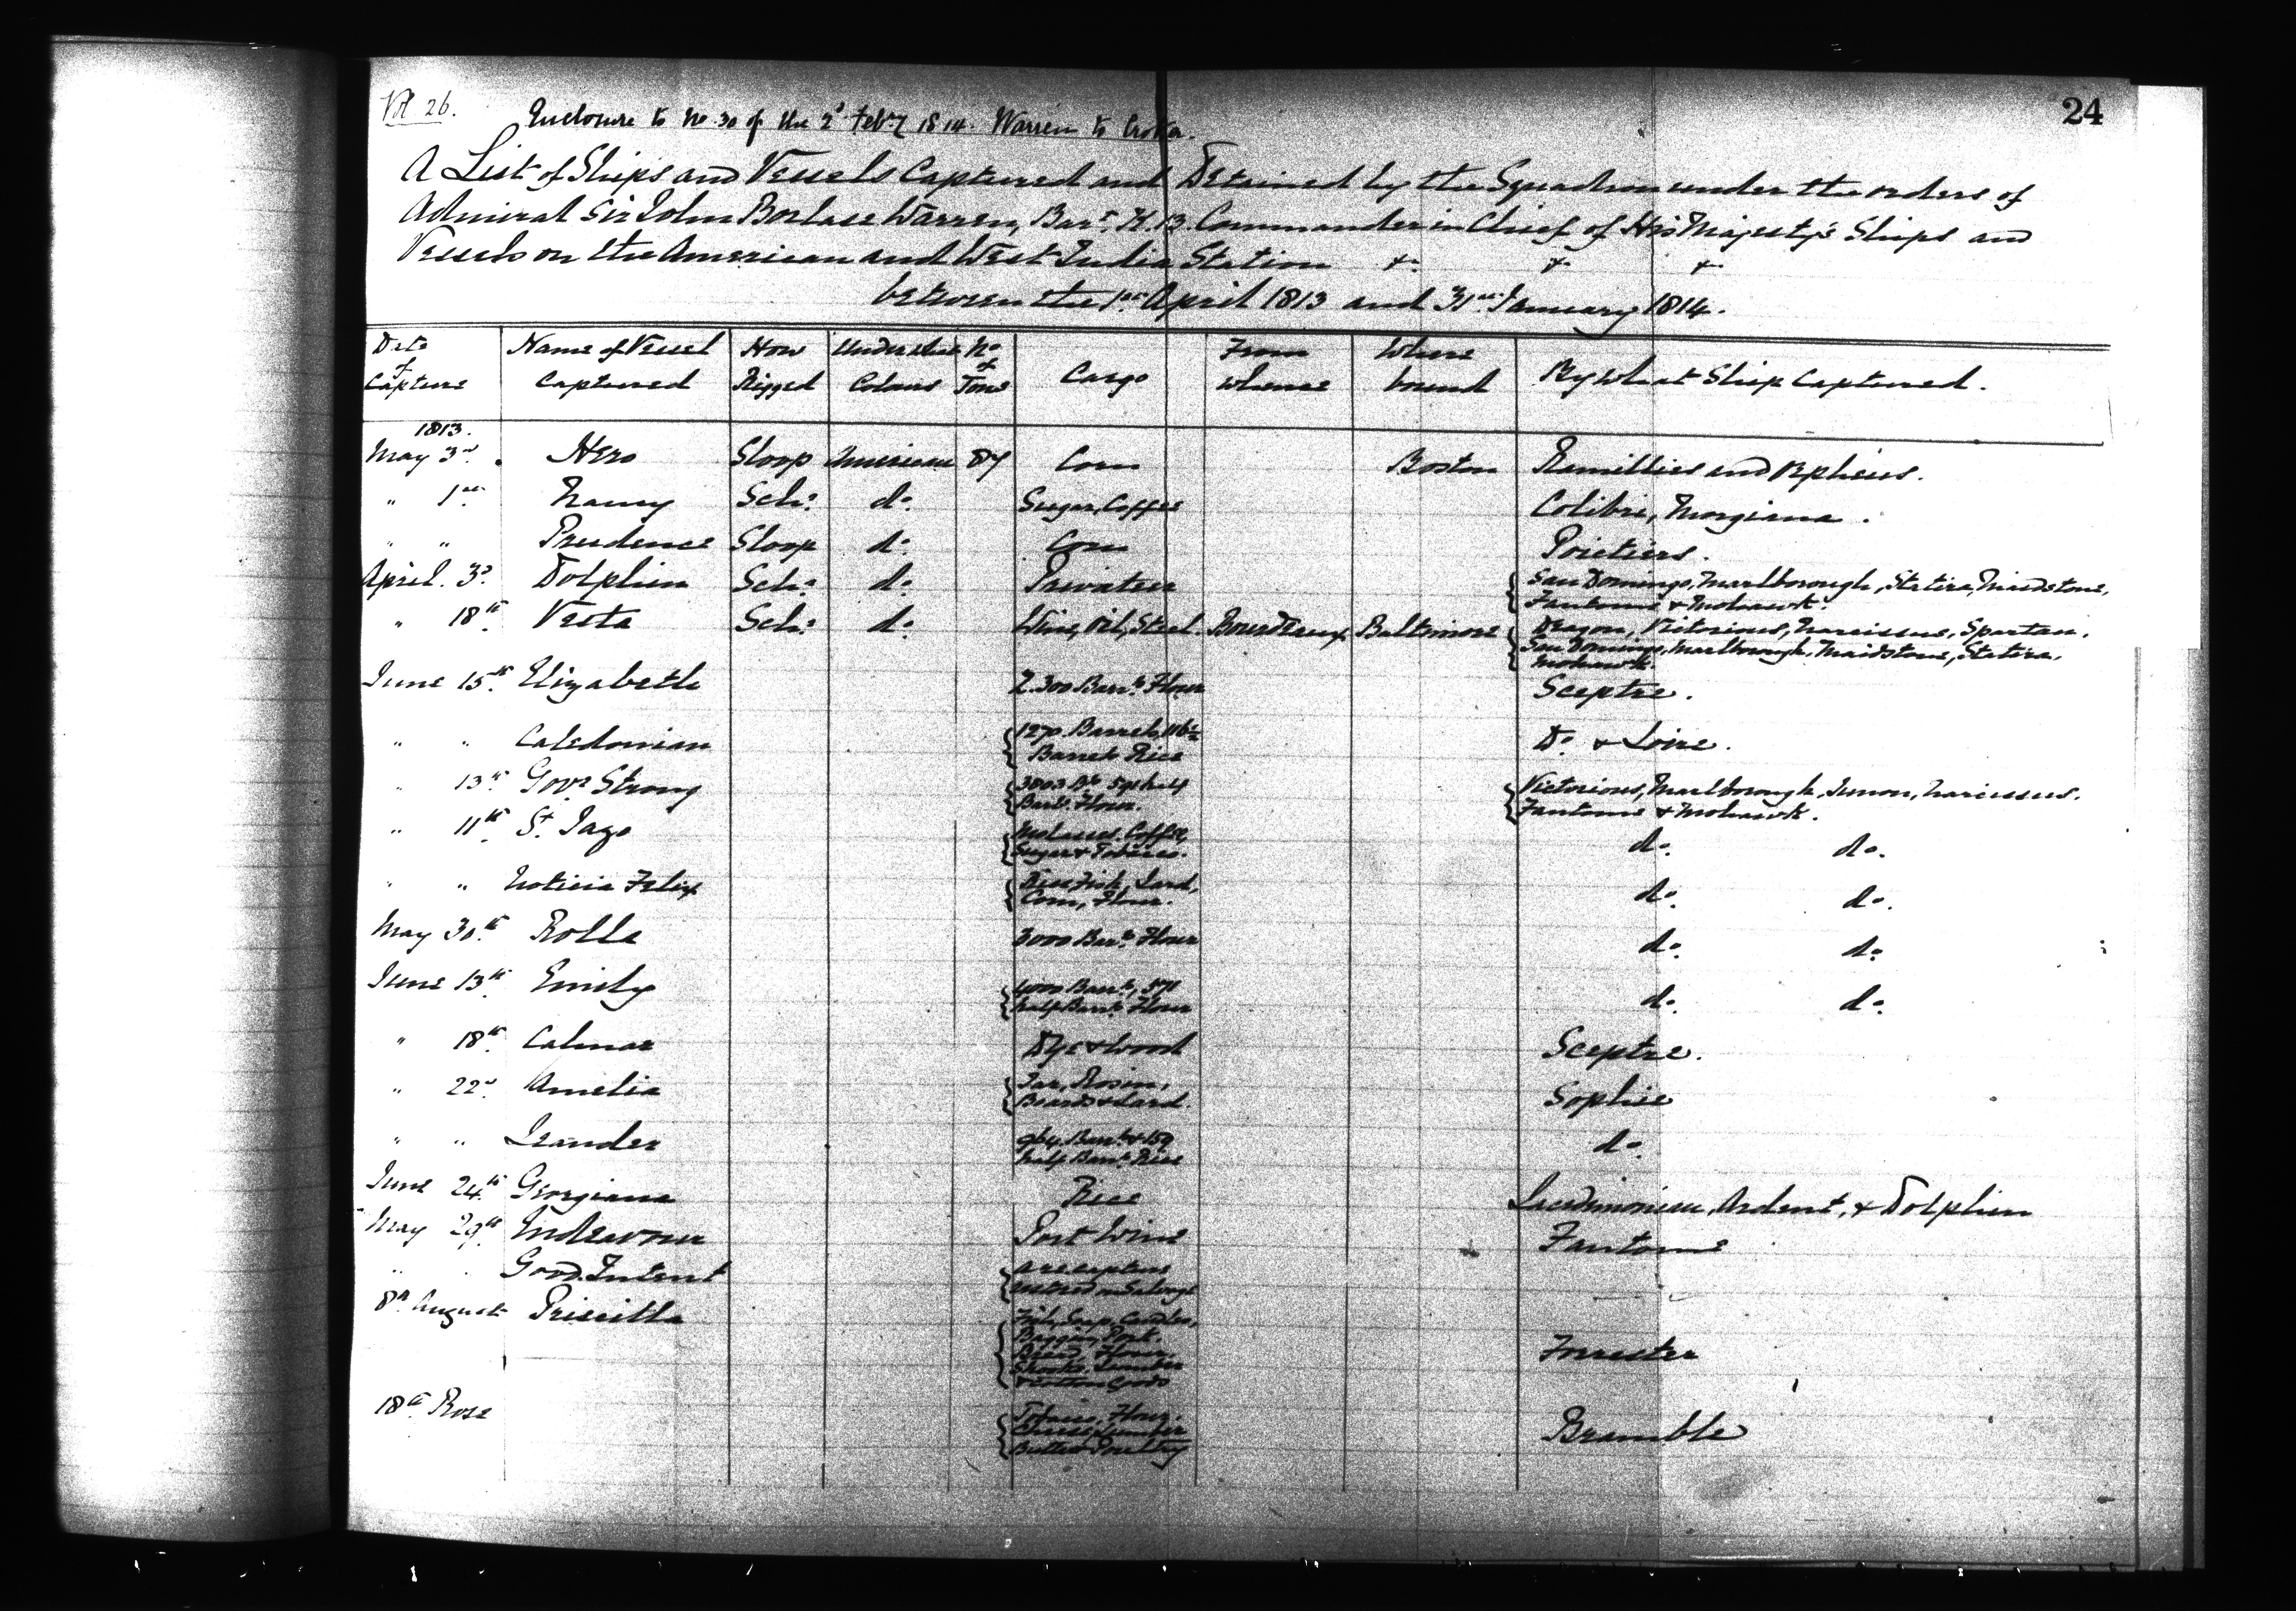 Vol 26.
24
Enclosure to No. 30 of the 2d Feby 1814. Warren to Croker.
A List of Ships and Vessels Captured and Detained by the Squadron under the orders of
Admiral Sir John Borlase Warren, Bart. K.B. Commander in Chief of His Majesty's Ships and
Vessels on the American and West India Station &c. &c. &c.
between the 1st April 1813 and 31st January 1814.
Date of Capture | Name of Vessel Captured | How Rigged | Under what Colours | No of Tons | Cargo | From whence | Where bound | By what Ship Captured.
1813.
May 3d. Hero Sloop American 87 Corn Boston Ramillies and Orpheus.
" 1st Nancy Schr. do. Sugar, Coffee Colibri, Morgiana.
" " Prudence Sloop do. Corn Poictiers.
April 3d. Dolphin Schr. do. Privateer San Domingo, Marlborough, Statira, Maidstone,
Fantome & Mohawk.
" 18th. Vesta Schr. do. Wine, Oil, Steel. Bourdeaux Baltimore Dragon, Victorious, Narcissus, Spartan,
San Domingo, Marlborough, Maidstone, Statira,
Mohawk.
June 15th. Elizabeth 2.300 Barrls Flour Sceptre.
" " Caledonian 1270 Barrels, 116 1/2
Barrels Rice Do. & Loire.
" 13th Govr Strong 3003 Bls half
Barls Flour. Victorious, Marlborough, Junon, Narcissus,
Fantome & Mohawk.
" 11th. St. Iago Molasses, Coffee,
Sugar & Tobacco. do. do.
" " Noticia Felix Rice, Fish, Lard,
Corn, Flour. do. do.
May 30th. Rolla 3000 Barrls Flour do. do.
June 13th. Emily 4000 Barrls, 571
half Barrls Flour do. do.
" 18th. Calmar Dye & Wood Sceptre.
" 22d. Amelia Tar, Rosin,
Boards & Lard. Sophie
" " Leander 964 Barrls & 159
half Barrls Rice do.
June 24th. Georgiana Rice Lacedimonian, Ardent, & Dolphin
May 29th. Endeavour Port Wine Fantome
" " Good Intent A recapture
restored on Salvage
8th August Priscilla Fish, Soap, Candles,
Bread, Flour.
Lumber
& Cotton Goods Forrester
18th. Rose Tobacco, Flour,
Cheese, Lumber
Butter, Poultry Bramble